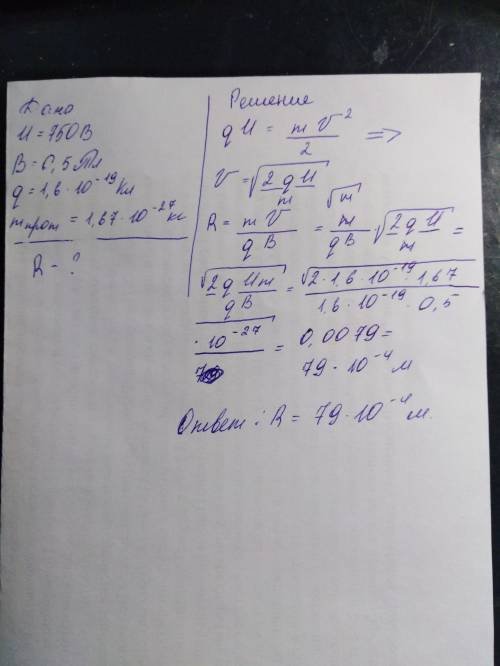 Дано
U = 750 В
B = 0,5 Тл
q = 1,6 · 10⁻¹⁹ Кл
m прот = 1,67 · 10⁻²⁷ кг
R - ?
Решение
qU = mV²/2 =>
V = √(2qU/m)
R = mV/qB = m/qB · √(2qU/m) = √m
√(2qUm)/qB = √(2 · 1,6 · 10⁻¹⁹ · 1,67/1,6 · 10⁻¹⁹ · 0,5
· 10⁻²⁷ = 0,0079 =
79 · 10⁻⁴ м
Ответ: R = 79 · 10⁻⁴ м.